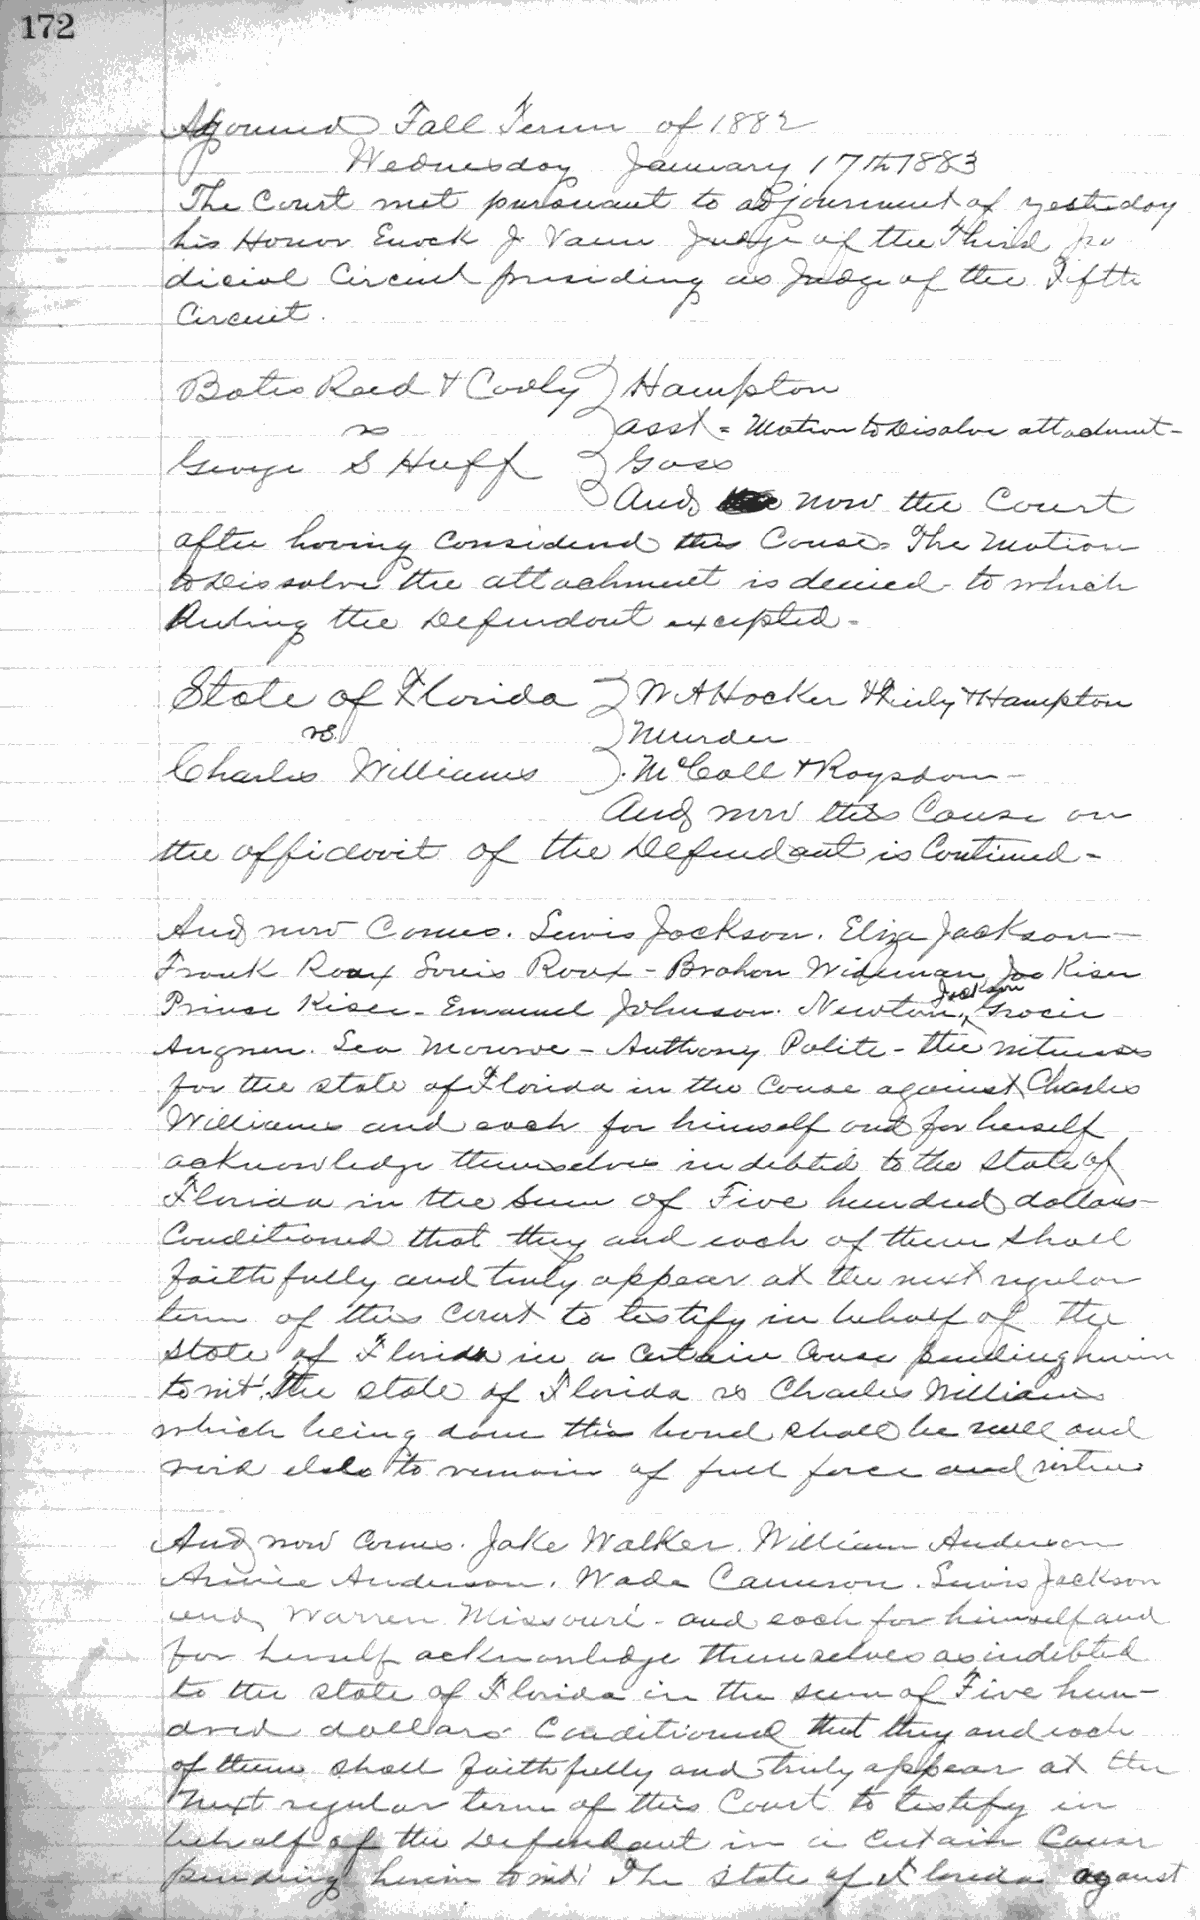 172
Adjourned Fall Term of 1882
Wednesday January 17th 1883
The Court met pursuant to adjournment of yesterday
his Honor Enock J Vann Judge of the Third Ju
dicial Circuit presiding as Judge of the Fifth
Circuit.
Bates Reed & Cooly } Hampton
vs } asst = Motion to Disolve attachment -
George S Huff } Goss
And now the Court
after having Considered this Cause. The Motion
to Dissolve the attachment is denied - to which
Ruling the Defendant excepted -
State of Florida } W A Hocker & Hampton
vs. } Murder
Charles Williams } McCall & Roysdon -
And now this Cause on
the affidavit of the Defendant is Continued -
And now Comes. Lewis Jackson. Eliza Jackson -
Frank Roux Louis Roux - Wideman Joe Kiser
Prince Kiser - Emanuel Johnson. Newton Jackson,
Sea Monroe - Anthony Polite - the witnesses
for the state of Florida in the Cause against Charles
Williams and each for himself and for herself
acknowledge themselves indebted to the State of
Florida in the Sum of Five hundred dollars -
Conditioned that they and each of them shall
faithfully and truly appear at the next regular
term of this Court to testify in behalf of the
State of Florida in a Certain Cause pending herein
towit: The state of Florida vs Charles Williams
which being done this bond shall be null and
void else to remain of full force and virtue
And now Comes. Jake Walker. William Anderson
Anderson. Wade Cameron. Lewis Jackson
and Warren Missouri - and each for himself and
for herself acknowledge themselves as indebted
to the state of Florida in the sum of Five hun-
dred dollars Conditioned that they and each
of them shall faithfully and truly appear at the
next regular term of this Court to testify in
behalf of the Defendant in a Certain Cause
pending herein towit: The State of Florida against